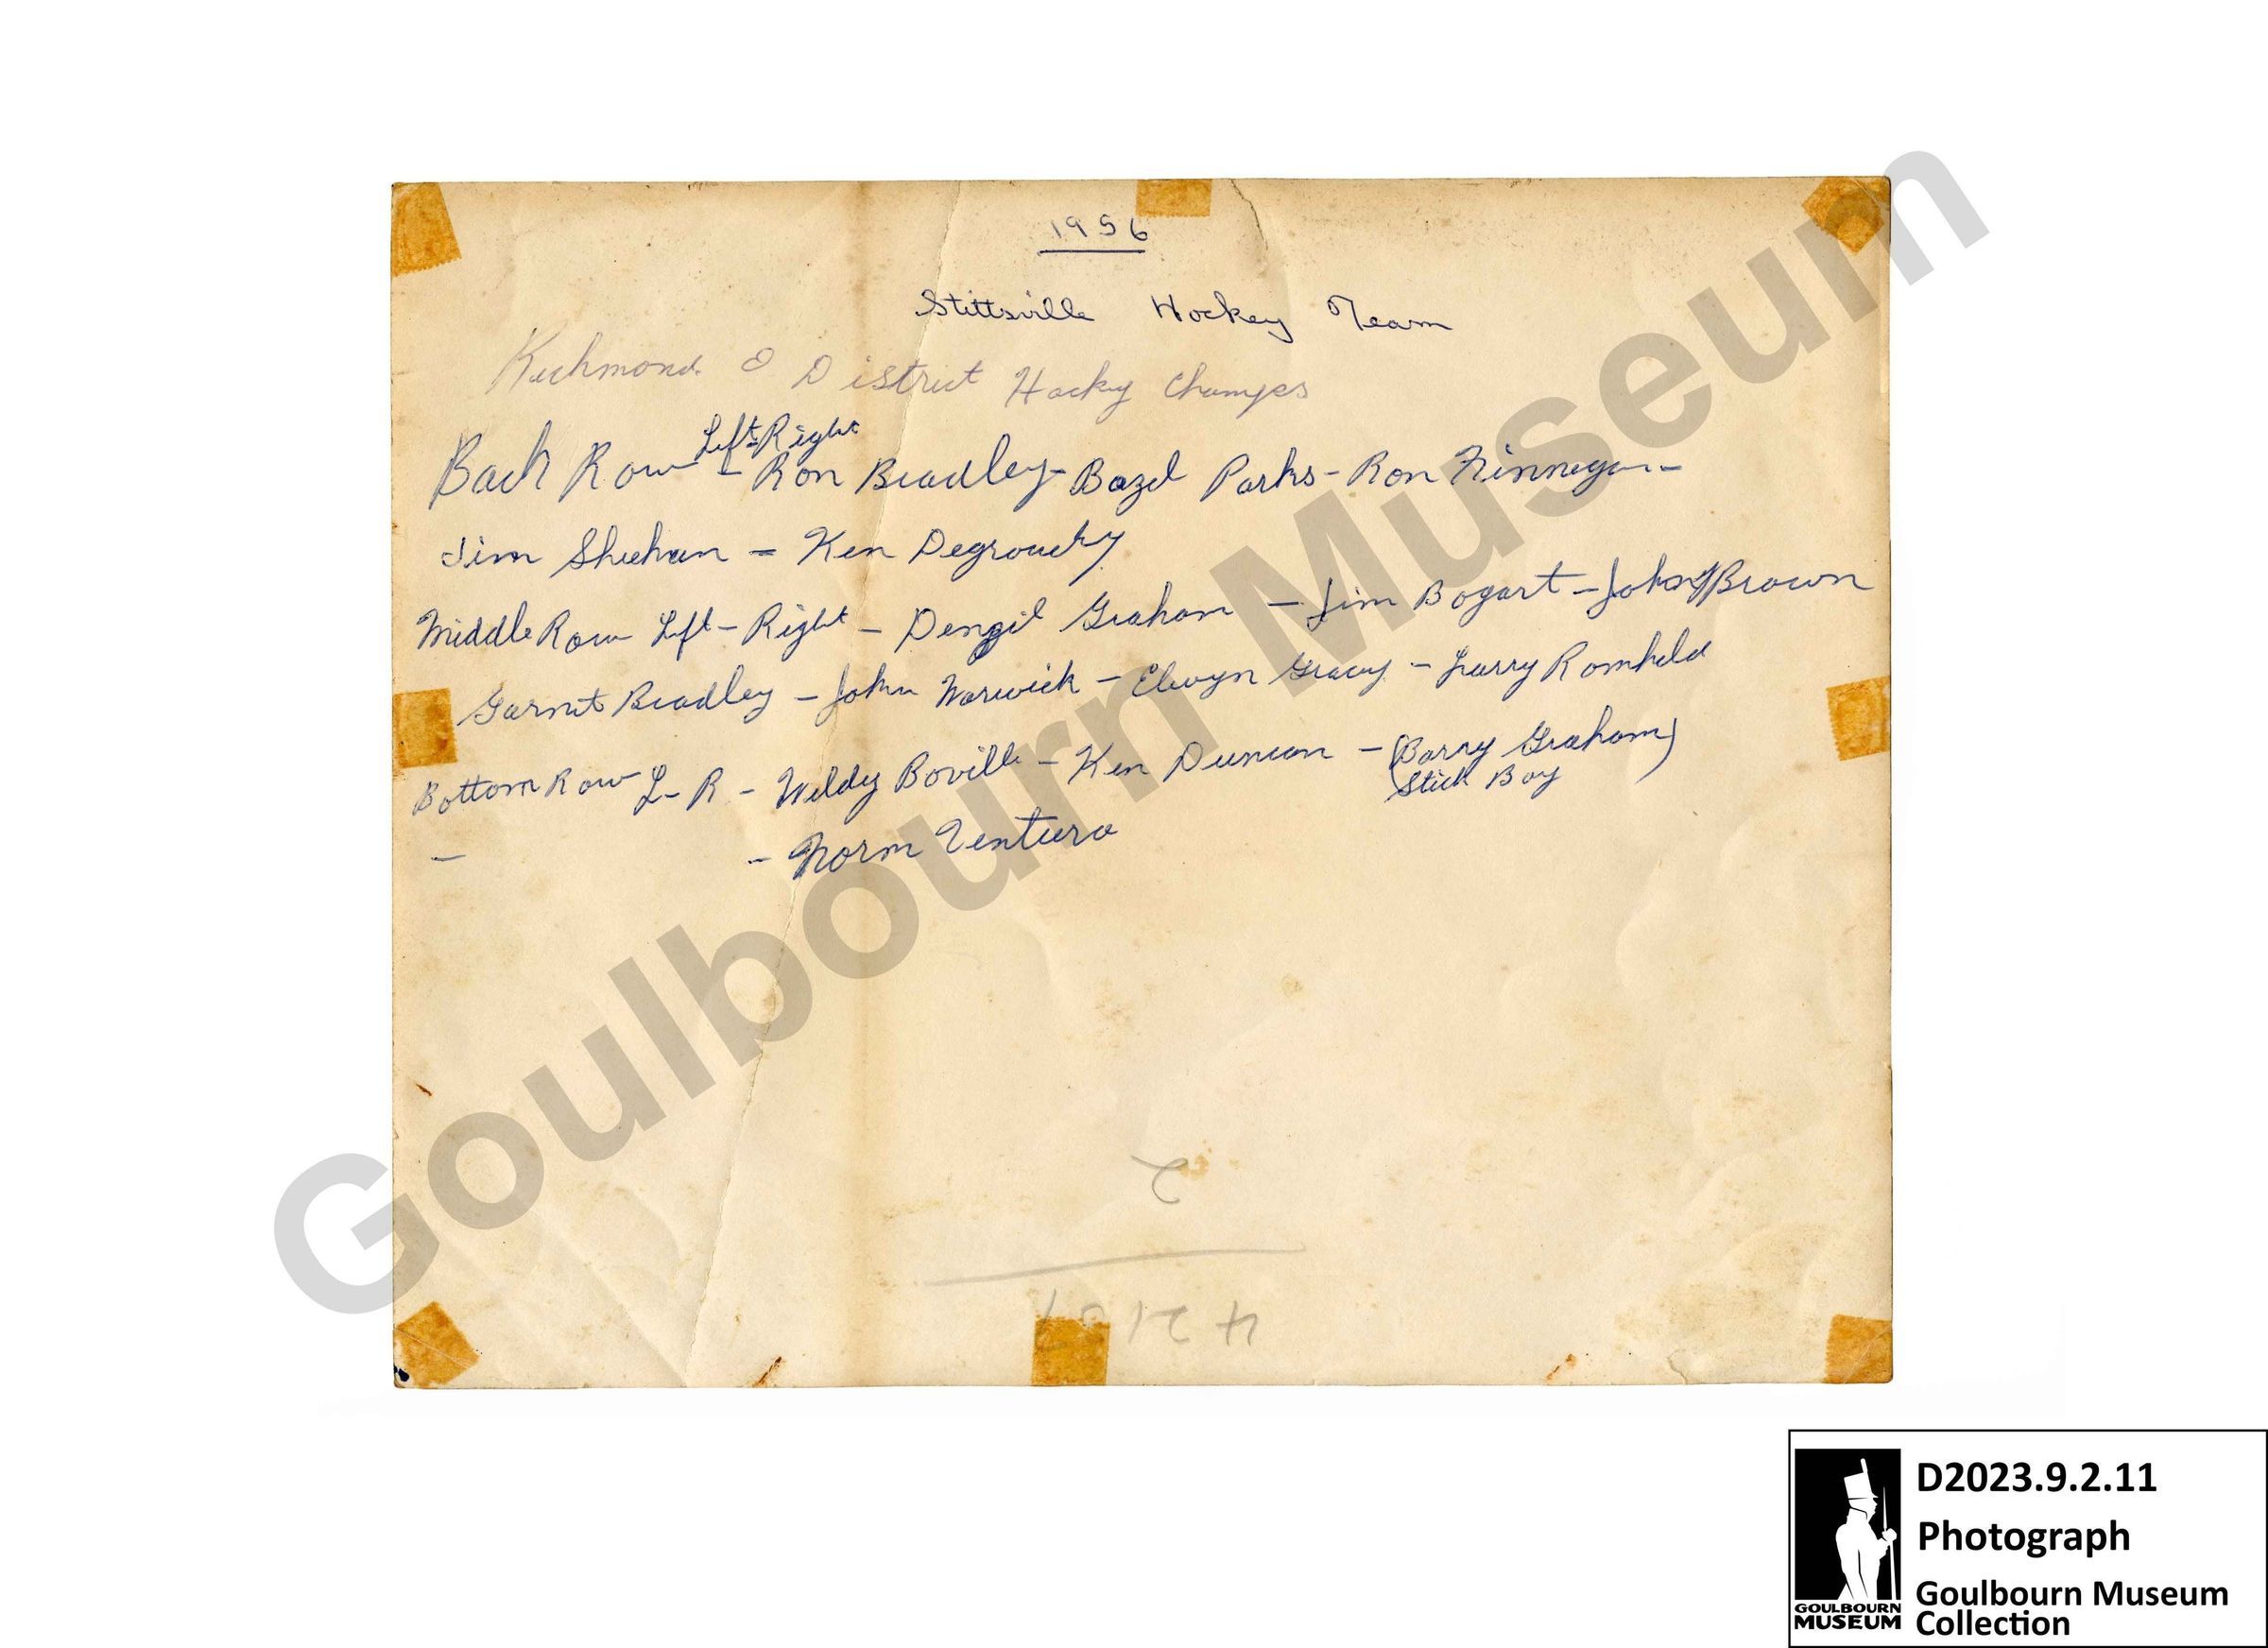 1956
Stittsville Hockey Team
Richmond & District Hocky Champs
Left-Right
Back Row - Ron Bradley - Bazel Parks - Ron Finnegan -
Jim Sheehan - Ken Degrouchy
Middle Row Left - Right - Denzil Graham - Jim Bogart - John Brown
Garnet Bradley - John Warwick - Elwyn Gracey - Larry Romheld
Bottom Row L - R - Weldy Boville - Ken Duncan - (Barry Graham)
Stick Boy
- - Norm Ventura
2
Goulbourn Museum
D2023.9.2.11
Photograph
Goulbourn Museum
Collection
GOULBOURN
MUSEUM